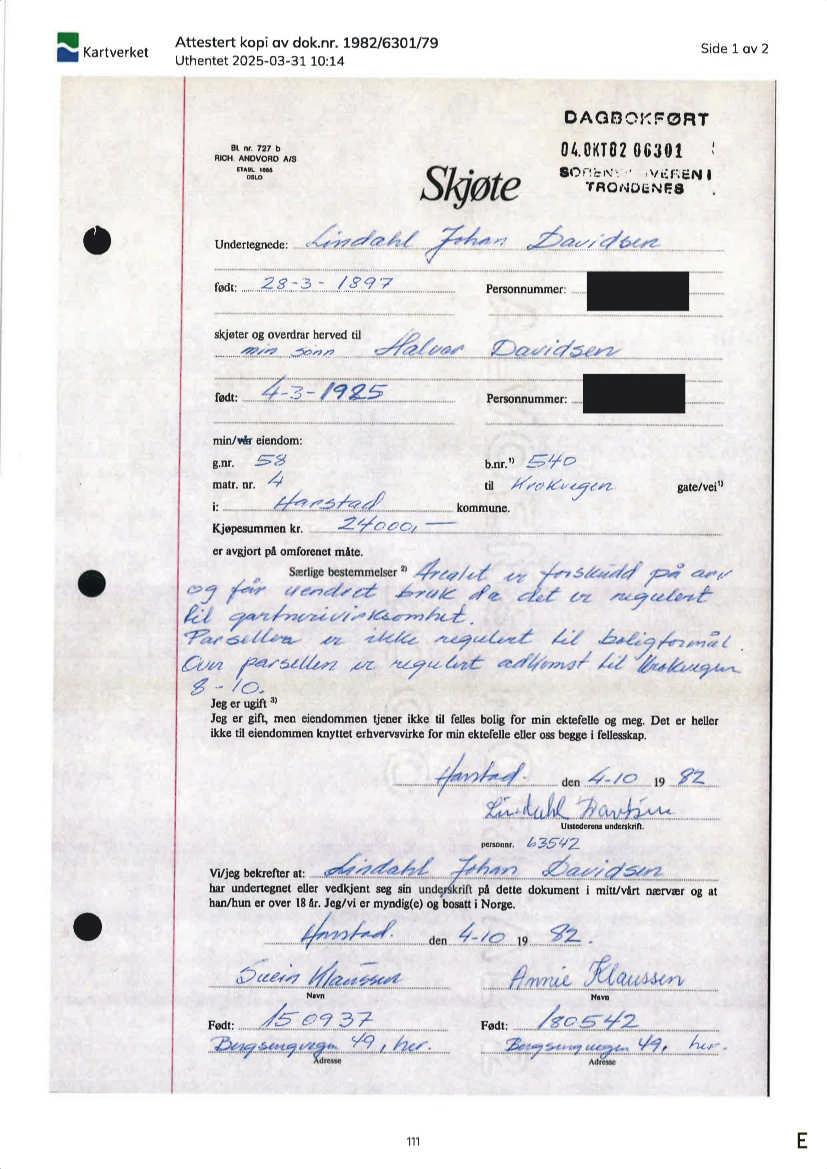 Kartverket
Attestert kopi av dok.nr. 1982/6301/79
Uthentet 2025-03-31 10:14
Side 1 av 2
DAGBOKFØRT
04.OKT82 06301
TRONDENES
Bl. nr. 727 b
RICH. ANDVORD A/S
ETABL. 1865
OSLO
Skjøte
Undertegnede: Lindahl Johan Davidsen
født: 28-3-1897 Personnummer:
skjøter og overdrar herved til
min sønn Halvar Davidsen
født: 4-3-1925 Personnummer:
min/vår eiendom:
g.nr. 58 b.nr.¹⁾ 540
matr. nr. 4 til Krokvegen gate/vei¹⁾
i: Harstad kommune.
Kjøpesummen kr. 24000,-
er avgjort på omforenet måte.
Særlige bestemmelser ²⁾ Arealet er forskudd på arv
og får uendret bruk da det er regulert
til gartnerivirksomhet.
Parsellen er ikke regulert til boligformål.
Over parsellen er regulert adkomst til Krokvegen
8-10.
Jeg er ugift ³⁾
Jeg er gift, men eiendommen tjener ikke til felles bolig for min ektefelle og meg. Det er heller
ikke til eiendommen knyttet erhvervsvirke for min ektefelle eller oss begge i fellesskap.
Harstad. den 4-10 19 82
Lindahl
Utstederens underskrift.
personnr. 63542
Vi/jeg bekrefter at: Lindahl Johan Davidsen
har undertegnet eller vedkjent seg sin underskrift på dette dokument i mitt/vårt nærvær og at
han/hun er over 18 år. Jeg/vi er myndig(e) og bosatt i Norge.
Harstad. den 4-10 19 82.
Svein Klaussen Annie Klaussen
Navn Navn
Født: 150937 Født: 180542
Bergsengvegen 49, her. Bergsengvegen 49, her.
Adresse Adresse
111
E